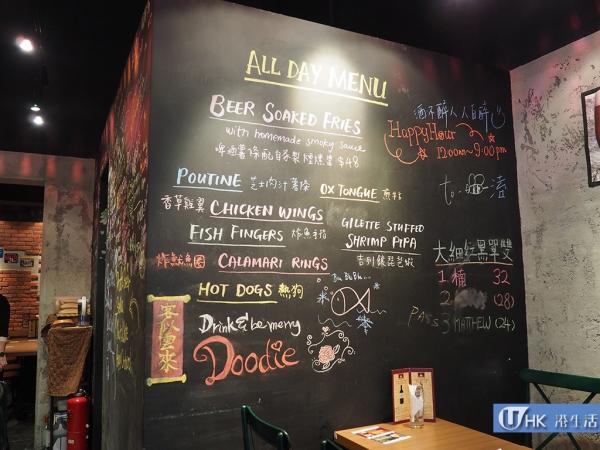 ALL DAY MENU
BEER SOAKED FRIES
with homemade smoky sauce
啤酒薯條配自家製煙燻醬 $48
POUTINE 芝士肉汁薯條
OX TONGUE
香草雞翼 CHICKEN WINGS
FISH FINGERS 炸魚手指
GILETTE STUFFED
SHRIMP PIPA
吉列釀琵琶蝦
炸魷魚圈 CALAMARI RINGS
HOT DOGS 熱狗
Blu Blu Blu...
Drink & be merry
Doodie
酒不醉人人自醉
Happy Hour
12:00nn~9:00pm
大細紅黑單雙
1. 楠 32
2. (28)
PASS 3 MATTHEW (24)
U HK 港生活